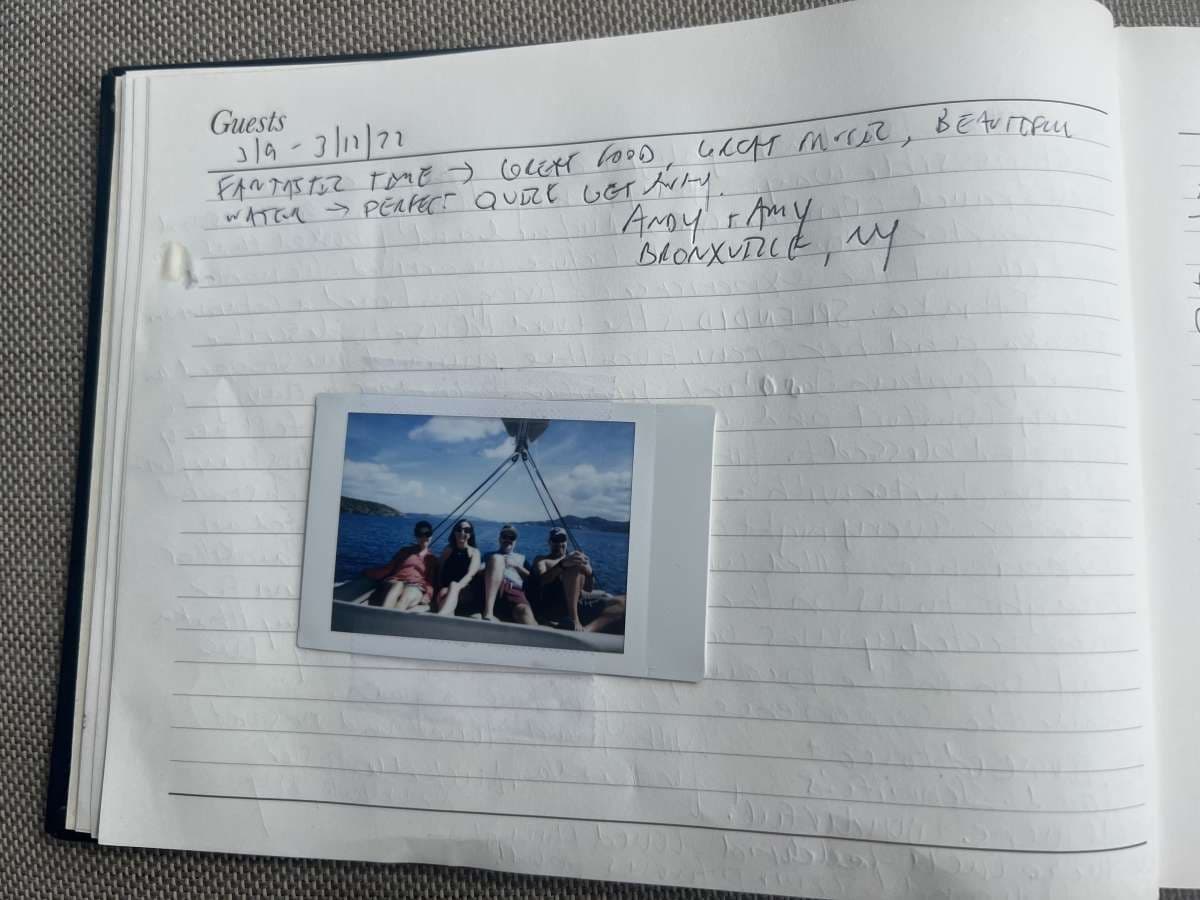 Guests
3/9 - 3/12/22
FANTASTIC TIME → GREAT FOOD, GREAT MUSIC, BEAUTIFUL
WATER → PERFECT QUICK GET AWAY.
ANDY + AMY
BRONXVILLE, NY